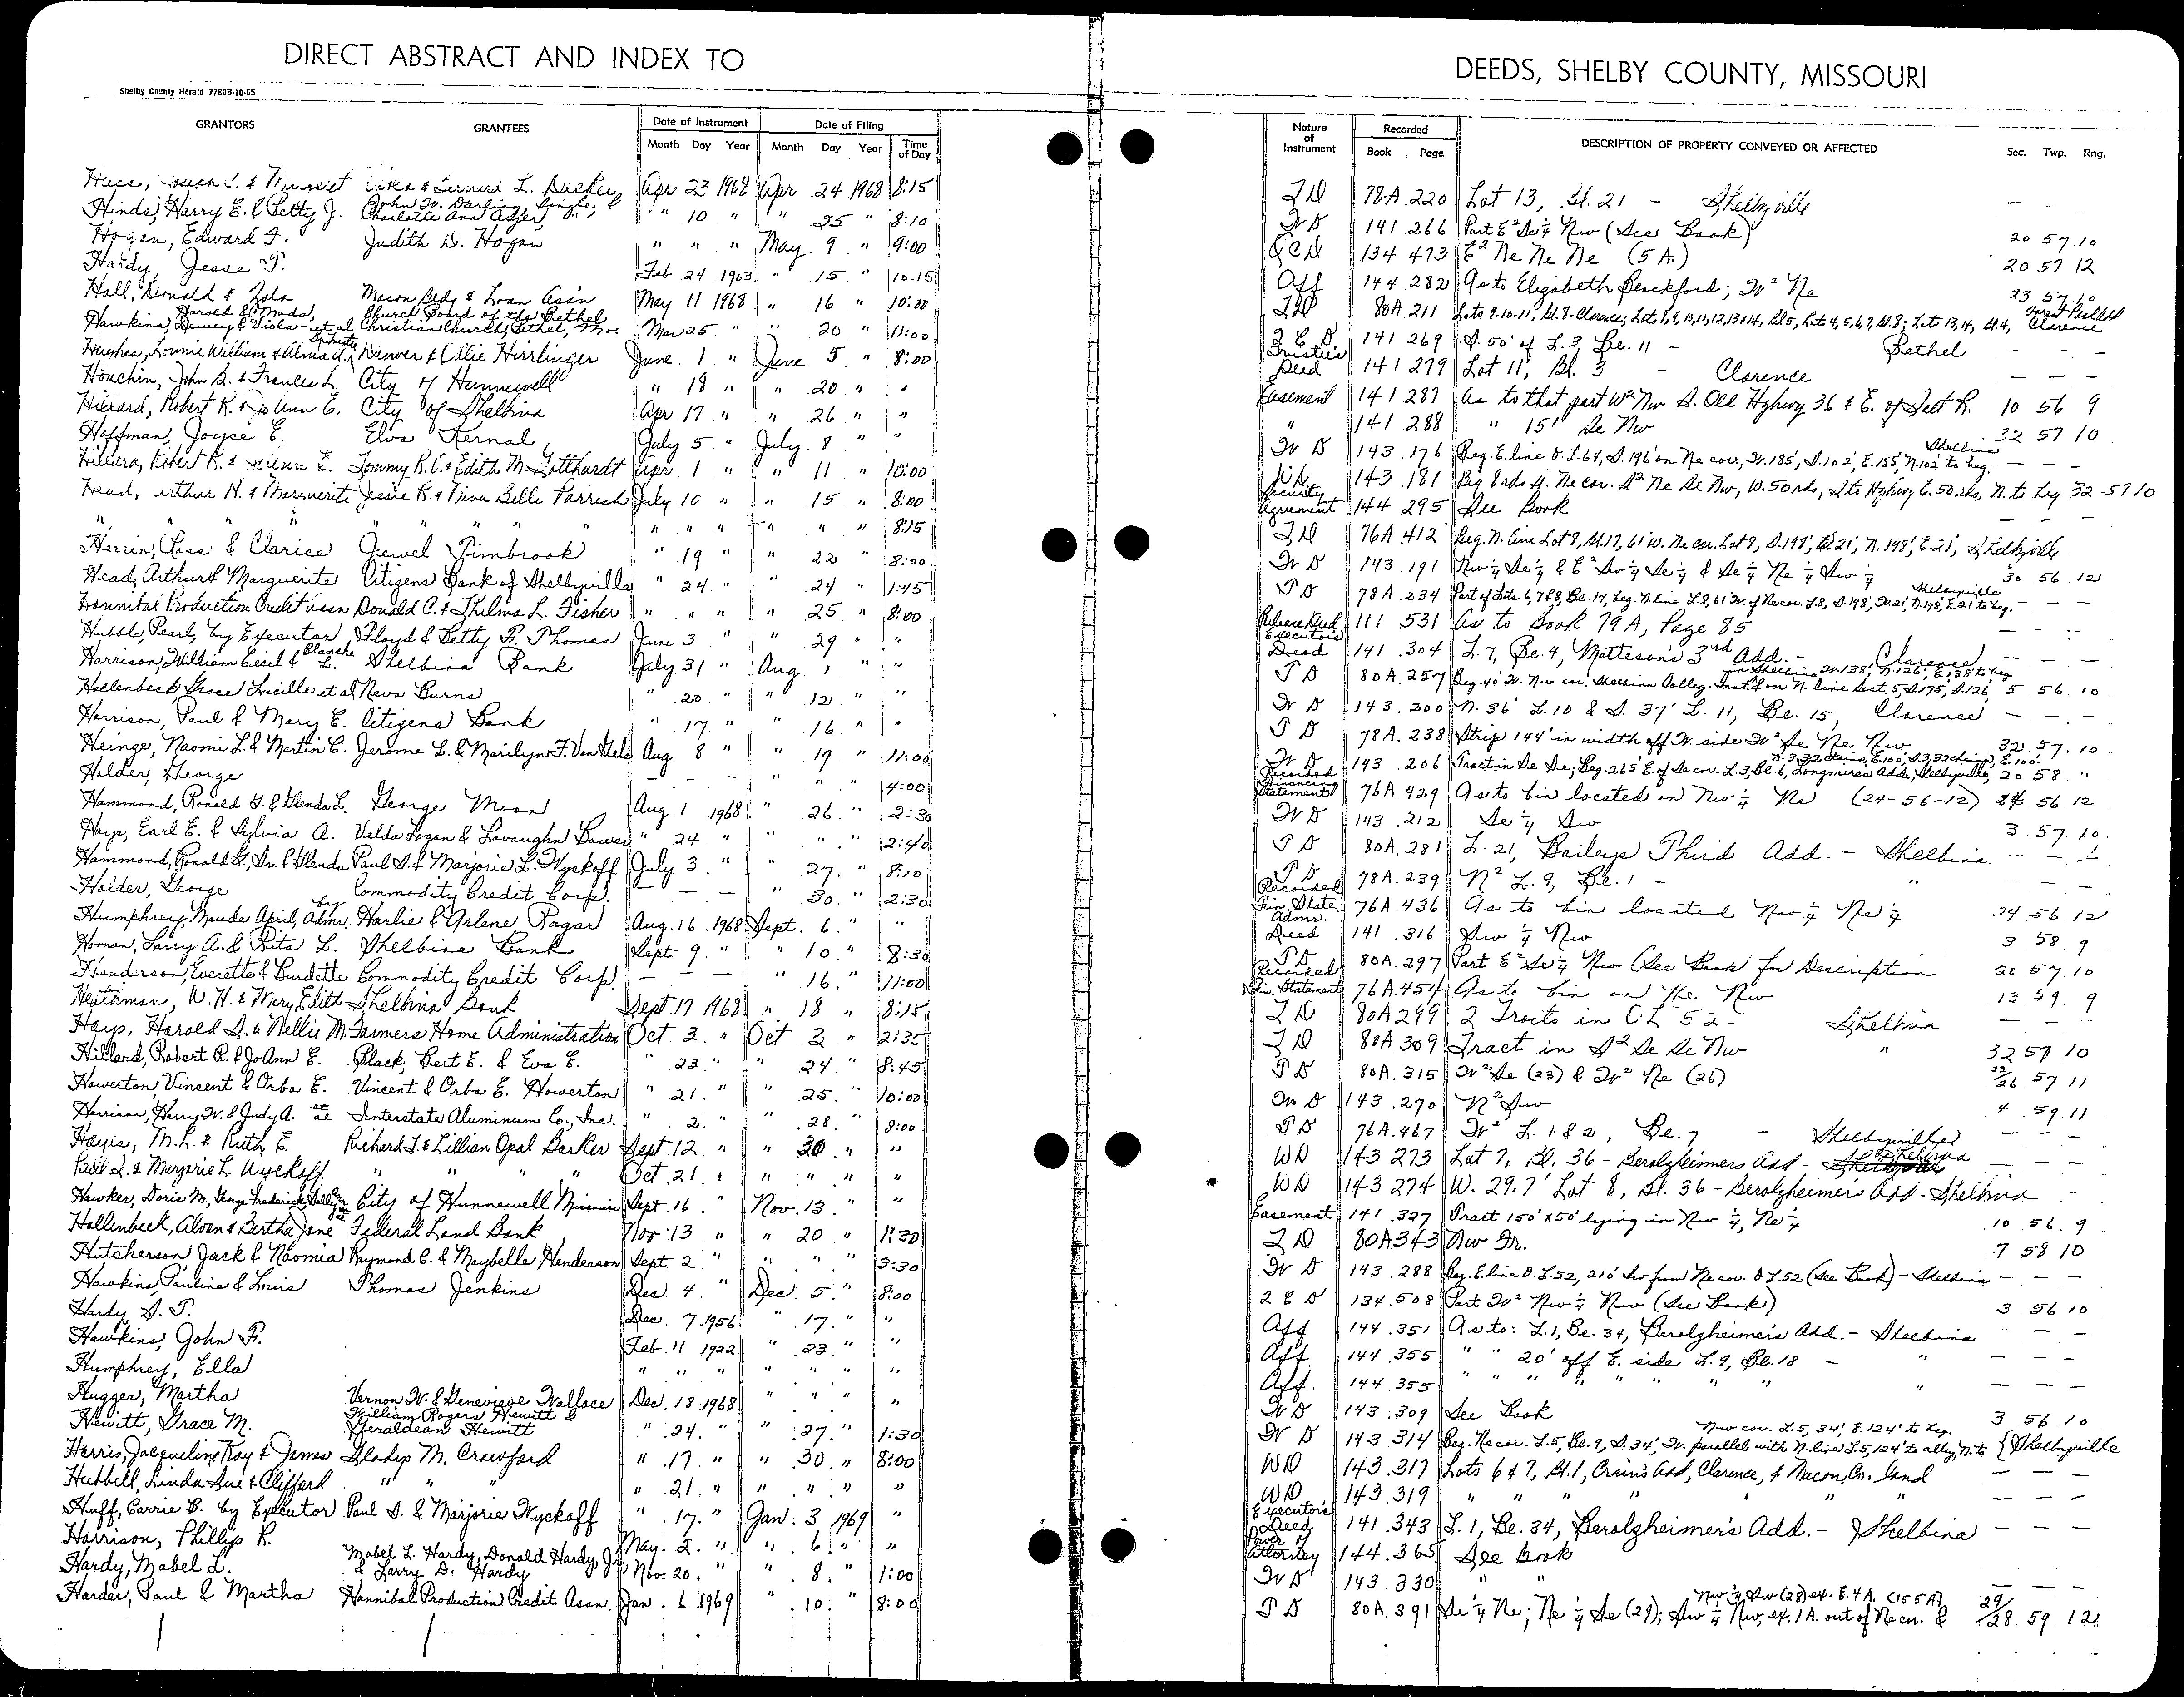 DIRECT ABSTRACT AND INDEX TO
Shelby County Herald 7780B-10-65
GRANTORS GRANTEES Date of Instrument Date of Filing
Month Day Year Month Day Year Time of Day
L. Apr 23 1968 Apr 24 1968 8:15
John W. Darling, Single, &
Hinds, Harry E. & Betty J. Charlotte Ann " 10 " " 25 " 8:10
Hogan, Edward F. Judith D. Hogan " " " May 9 " 9:00
Hardy, Jesse T. Feb 24 1963 " 15 " 10:15
Hall, Donald & Zola Macon Bldg & Loan Ass'n May 11 1968 " 16 " 10:00
Harold & Mada, Church Board of the Bethel
Hawkins, Dewey & Viola - et al Christian Church, Bethel, Mo. Mar 25 " " 20 " 11:00
Hughes, Lonnie William & Denver & Ollie Hirrlinger June 1 " June 5 " 8:00
Houchin, John B. & Frances L. City of Hunnewell " 18 " " 20 " "
Hillard, Robert R. & Jo Ann E. City of Shelbina Apr 17 " " 26 " "
Hoffman, Joyce E. Elva Kernal July 5 " July 8 " "
Hillard, Robert R. & E. Tommy R. & Edith M. Gotthardt Apr 1 " " 11 " 10:00
Head, Arthur H. & Marguerite Jessie R. & Neva Belle Parrish July 10 " " 15 " 8:00
" " " " " " " " " " " " " 8:15
Herrin, Ross & Clarice Jewel Timbrook " 19 " " 22 " 8:00
Head, Arthur & Marguerite Citizens Bank of Shelbyville " 24 " " 24 " 1:45
Hannibal Production Credit Assn Donald C. & Thelma L. Fisher " " " " 25 " 8:00
Hubble, Pearl, by Executor Floyd & Betty F. Thomas June 3 " " 29 " "
Harrison, William Cecil & Blanche L. Shelbina Bank July 31 " Aug. 1 " "
Hollenbeck Grace Lucille et al Neva Burns " 20 " " 12 " "
Harrison, Paul & Mary E. Citizens Bank " 17 " " 16 " "
Heinge, Naomi L. & Martin C. Jerome L. & Marilyn F. Van Aug. 8 " " 19 " 11:00
Holder, George — — — " " " 4:00
Hammond, Ronald G. & Glenda L. George Moon Aug. 1 1968 " 26 " 2:30
Hays, Earl E. & Sylvia A. Velda Logan & Lavaughn Bower " 24 " " " " 2:40
Hammond, Ronald G., Sr. & Glenda Paul D. & Marjorie L. Wyckoff July 3 " " 27 " 8:10
Holder, George Commodity Credit Corp. — — — " 30 " 2:30
Humphrey, Maude by April, Admr. Harlie & Arlene Ragar Aug. 16 1968 Sept. 6 " "
Homan, Larry A. & Rita L. Shelbina Bank Sept 9 " " 10 " 8:30
Henderson, Everette & Burdette Commodity Credit Corp. — — — " 16 " 11:00
Heathman, W. H. & Mary Edith Shelbina Bank Sept 17 1968 " 18 " 8:15
Hays, Harold D. & Nellie M. Farmers Home Administration Oct. 2 " Oct 2 " 2:35
Hillard, Robert R. & JoAnn E. Black, Bert E. & Eva E. " 23 " " 24 " 8:45
Howerton, Vincent & Orba E. Vincent & Orba E. Howerton " 21 " " 25 " 10:00
Harrison, Harry W. & Judy A. et al Interstate Aluminum Co., Inc. " 2 " " 28 " 8:00
Hayis, M. L. & Ruth E. Richard T. & Lillian Opal Barker Sept. 12 " " 30 " "
Paul D. & Marjorie L. Wyckoff " " " " Oct. 21 " " " " "
Hawker, Doris M., George Frederick, City of Hunnewell Missouri Sept. 16 " Nov. 13 " "
Hollenbeck, Alven & Bertha Jane Federal Land Bank Nov 13 " " 20 " 1:30
Hutcherson Jack & Naomia Raymond C. & Maybelle Henderson Sept. 2 " " " " 3:30
Hawkins, Pauline & Louis Thomas Jenkins Dec. 4 " Dec. 5 " 8:00
Hardy, S. T. Dec. 7 1956 " 17 " "
Hawkins, John F. Feb. 11 1922 " 23 " "
Humphrey, Ella " " " " " " "
Hugger, Martha Vernon W. & Genevieve Wallace Dec. 18 1968 " " " "
William Rogers Hewitt &
Hewitt, Grace M. Geraldean Hewitt " 24 " " 27 " 1:30
Harris, Jacqueline Kay & James Gladys M. Crawford " 17 " " 30 " 8:00
Hubbill, Linda Sue & Clifford " " " 21 " " " " "
Huff, Carrie B. by Executor Paul D. & Marjorie Wyckoff " 17 " Jan. 3 1969 "
Harrison, Phillip R. May 2 " " 6 " "
Mabel L. Hardy, Donald Hardy, Jr
Hardy, Mabel L. & Larry D. Hardy Nov. 20 " " 8 " 1:00
Harder, Paul & Martha Hannibal Production Credit Assn. Jan. 6 1969 " 10 " 8:00
DEEDS, SHELBY COUNTY, MISSOURI
Nature of Instrument Recorded DESCRIPTION OF PROPERTY CONVEYED OR AFFECTED Sec. Twp. Rng.
Book Page
T D 78A 220 Lot 13, Bl. 21 - Shelbyville — —
W D 141 266 Part E² Se¼ Nw (See Book) 20 57 10
Q C D 134 473 E² Ne Ne Ne (5 A.) 20 57 12
Aff 144 282 As to Elizabeth Blackford; W² Ne 23 57 10
T D 80A 211 Lots 9-10-11, Bl. 8-Clarence; Lots 8, 9, 10, 11, 12, 13 & 14, Bl 5, Lots 4, 5, 6, 7, Bl. 8; Lots 13, 14, Bl. 4, Clarence
Q C D 141 269 S. 50' of L. 3, Bl. 11 - Bethel — — —
Trustee's Deed 141 279 Lot 11, Bl. 3 - Clarence — — —
Easement 141 287 As to that part W² Nw S. Old Hghwy 36 & E. of Salt R. 10 56 9
" 141 288 " 15' Se Nw 32 57 10
W D 143 176 Beg. E. line O. L. 64, S. 196' on Ne cor., W. 185', S. 102', E. 185', N. 102' to beg. Shelbina — — —
W D 143 181 Beg 8 rds S. Ne cor. S² Ne Se Nw, W. 50 rds, S to Hghwy E. 50 rds, N. to beg 32 57 10
Security Agreement 144 295 See Book — — —
T D 76A 412 Beg. N. line Lot 8, Bl. 17, 61' W. Ne cor. Lot 8, S. 198', W. 21', N. 198', E. 21', Shelbyville
W D 143 191 Nw¼ Se¼ & E² Sw¼ Se¼ & Se¼ Ne¼ Sw¼ 30 56 12
T D 78A 234 Part of Lots 6, 7 & 8, Bl. 17, beg. N. line L. 8, 61' W. of Ne cor. L. 8, S. 198', W. 21', N. 198', E. 21' to beg. Shelbyville — — —
Release Deed 111 531 As to Book 79 A, Page 85 — — —
Executor's Deed 141 304 L. 7, Bl. 4, Matteson's 3rd Add. - Clarence — — —
T D 80A 257 Beg. 40' W. Nw cor. Shelbina Colleg. Inst. from N. line Sect. 5, S. 175', S. 126', in Shelbina, W. 138', N. 126', E. 138' to beg 5 56 10
W D 143 200 N. 36' L. 10 & S. 37' L. 11, Bl. 15, Clarence — — —
T D 78A 238 Strip 144' in width off W. side W² Se Ne Nw 32 57 10
W D 143 206 Tract in Se Se; Beg. 265' E. of Se cor. L. 3, Bl. 6, Longmires Add., Shelbyville, 20 58 "
Recorded Financing Statement 76A 429 As to bin located on Nw¼ Ne (24-56-12) 24 56 12
W D 143 212 Se¼ Sw 3 57 10
T D 80A 281 L. 21, Baileys Third Add. - Shelbina — — —
T D 78A 239 N² L. 9, Bl. 1 - " — — —
Recorded Fin. State. 76A 436 As to bin located Nw¼ Ne¼ 24 56 12
Admr. Deed 141 316 Sw¼ Nw 3 58 9
T D 80A 297 Part E² Se¼ Nw (See Book for Description 20 57 10
Recorded Fin. Statement 76A 454 As to bin on Ne Nw 13 59 9
T D 80A 299 2 Tracts in OL 52 - Shelbina — —
T D 80A 309 Tract in S² Se Se Nw " 32 57 10
T D 80A 315 W² Se (23) & W² Ne (26) 23/26 57 11
W D 143 270 N² Sw 4 59 11
T D 76A 467 W² L. 1 & 2, Bl. 7 - Shelbyville — — —
W D 143 273 Lot 7, Bl. 36 - Berolzheimers Add - Shelbina — — —
W D 143 274 W. 29.7' Lot 8, Bl. 36 - Berolzheimer's Add - Shelbina -
Easement 141 327 Tract 150' x 50' lying in Nw¼, Ne¼ 10 56 9
T D 80A 343 Nw Fr. 7 58 10
W D 143 288 Beg. E line O. L. 52, 210' Sw from Ne cor. O. L. 52 (See Book) - Shelbina — — —
Q C D 134 508 Part W² Nw¼ Nw (See Book) 3 56 10
Aff 144 351 As to: L. 1, Bl. 34, Berolzheimer's Add. - Shelbina — —
Aff. 144 355 " " 20' off E. side L. 9, Bl. 18 - " — — —
Aff. 144 355 " " " " " " " " — — —
W D 143 309 See Book 3 56 10
Nw cor. L. 5, 34', E. 124' to beg.
W D 143 314 Beg. Ne cor. L. 5, Bl. 9, S. 34', W. parallel with N. line L. 5, 124' to alley, N. to { Shelbyville
W D 143 317 Lots 6 & 7, Bl. 1, Crain's Add, Clarence, & Macon Co. land — — —
W D 143 319 " " " " " " — — —
Executor's Deed 141 343 L. 1, Bl. 34, Berolzheimer's Add. - Shelbina — — —
Power of Attorney 144 365 See Book
W D 143 330 " " — — —
Nw¼ Sw (28) ex. E. 4 A. (155 A)
T D 80A 391 Se¼ Ne; Ne¼ Se (29); Sw¼ Nw, ex. 1 A. out of Ne cor. & 29/28 59 12